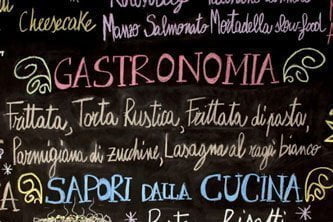 Cheesecake
Manzo Salmonato Mortadella slow food
GASTRONOMIA
Frittata, Torta Rustica, Frittata di pasta,
Parmigiana di zucchine, Lasagna al ragù bianco
SAPORI DALLA CUCINA